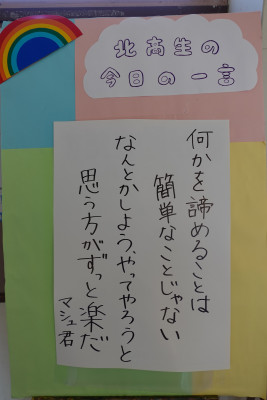 北高生の
今日の一言
何かを諦めることは
簡単なことじゃない
なんとかしよう、やってやろうと
思う方がずっと楽だ
マシュ君